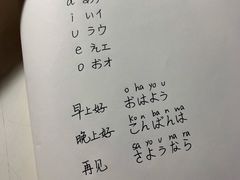 a あア
i いイ
u うウ
e えエ
o おオ
o ha yo u
早上好 おはよう
kon ban wa
晚上好 こんばんは
sa yo u na ra
再见 さようなら